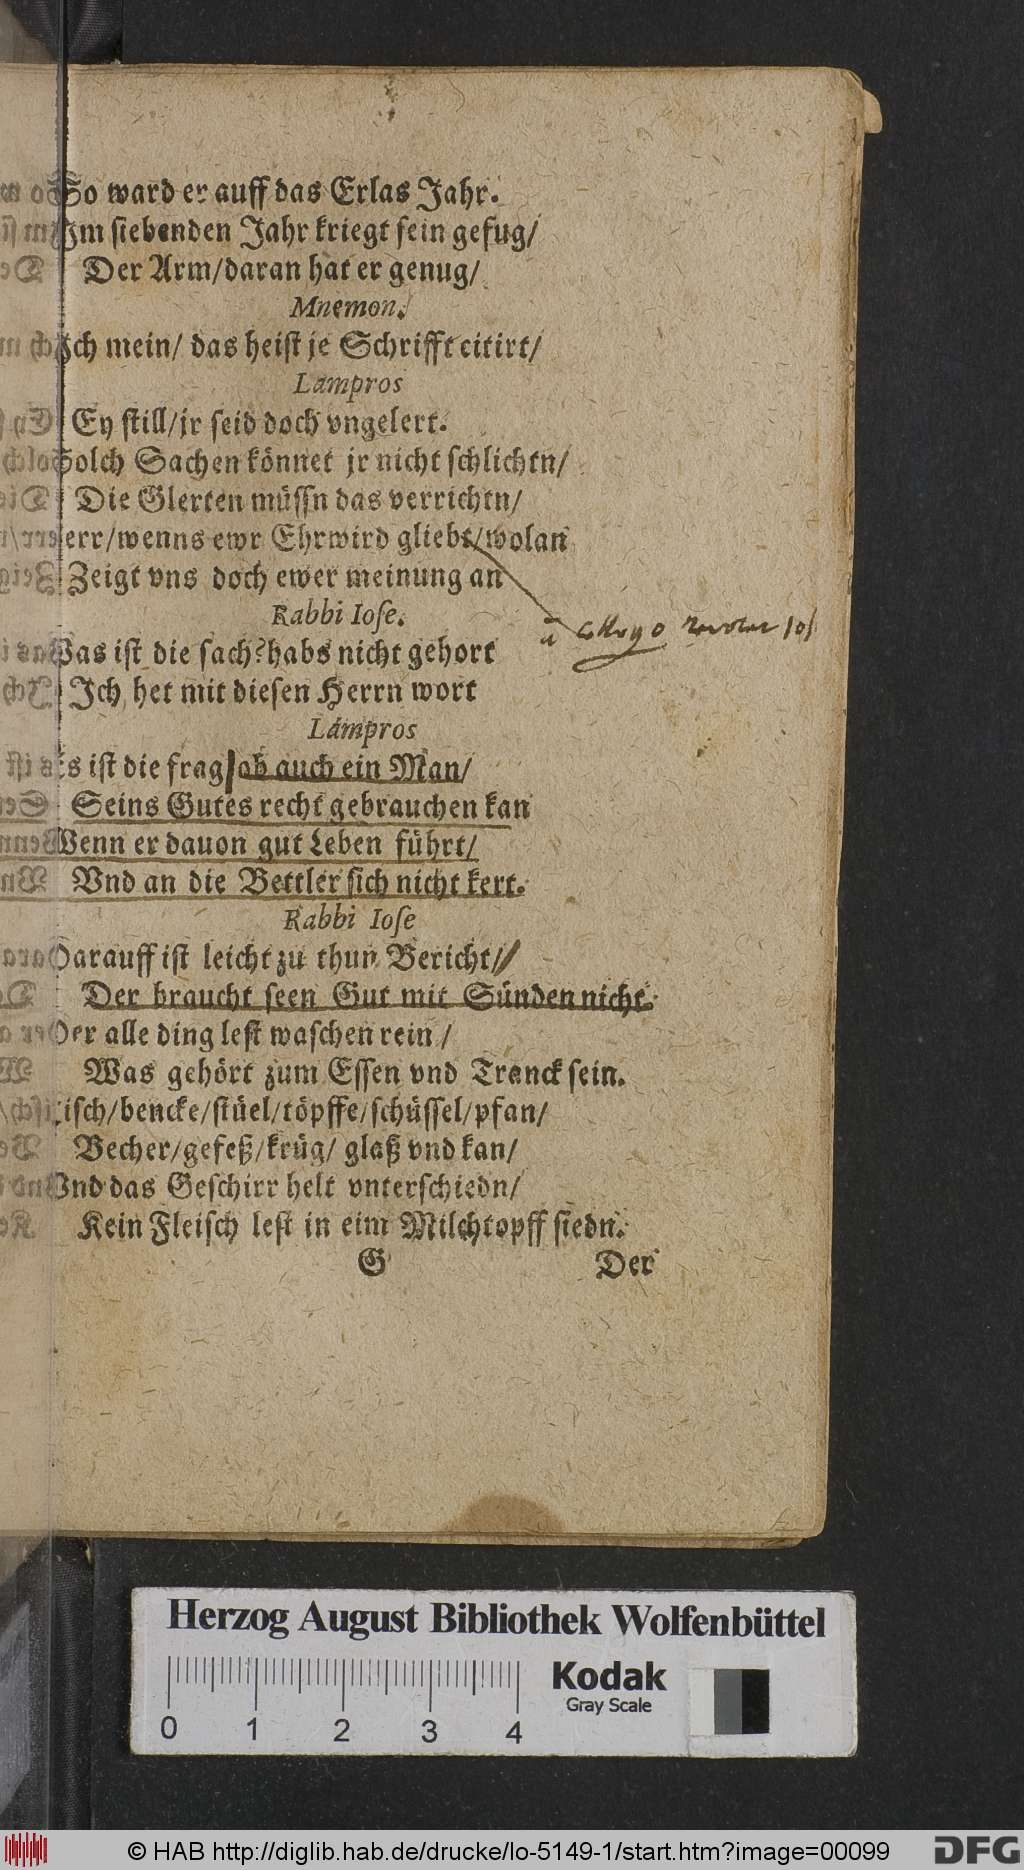 So ward er auff das Erlas Jahr.
Im siebenden Jahr kriegt sein gefug/
Der Arm/daran hat er genug/
Mnemon.
Ich mein/ das heist je Schrifft citirt/
Lampros
Ey still/jr seid doch vngelert.
Solch Sachen können jr nicht schlichtn/
Die Glerten müssn das verrichtn/
Herr/wenns ewr Ehrwird gliebt/wolan
Zeigt vns doch ewer meinung an
Rabbi Iose.
Was ist die sach?habs nicht gehort
Ich het mit diesen Herrn wort
Lampros
Es ist die frag/ob auch ein Man/
Seins Gutes recht gebrauchen kan
Wenn er dauon gut Leben führt/
Vnd an die Bettler sich nicht kert.
Rabbi Iose
Darauff ist leicht zu thun Bericht/
Der braucht seen Gut mit Sünden nicht.
Der alle ding lest waschen rein/
Was gehört zum Essen vnd Tranck sein.
Tisch/bencke/stüel/töpffe/schüssel/pfan/
Becher/gefeß/krüg/ glaß vnd kan/
Vnd das Geschirr helt vnterschiedn/
Kein Fleisch lest in eim Milchtopff siedn.
G Der
Herzog August Bibliothek Wolfenbüttel
Kodak
Gray Scale
0 1 2 3 4
© HAB http://diglib.hab.de/drucke/lo-5149-1/start.htm?image=00099
DFG